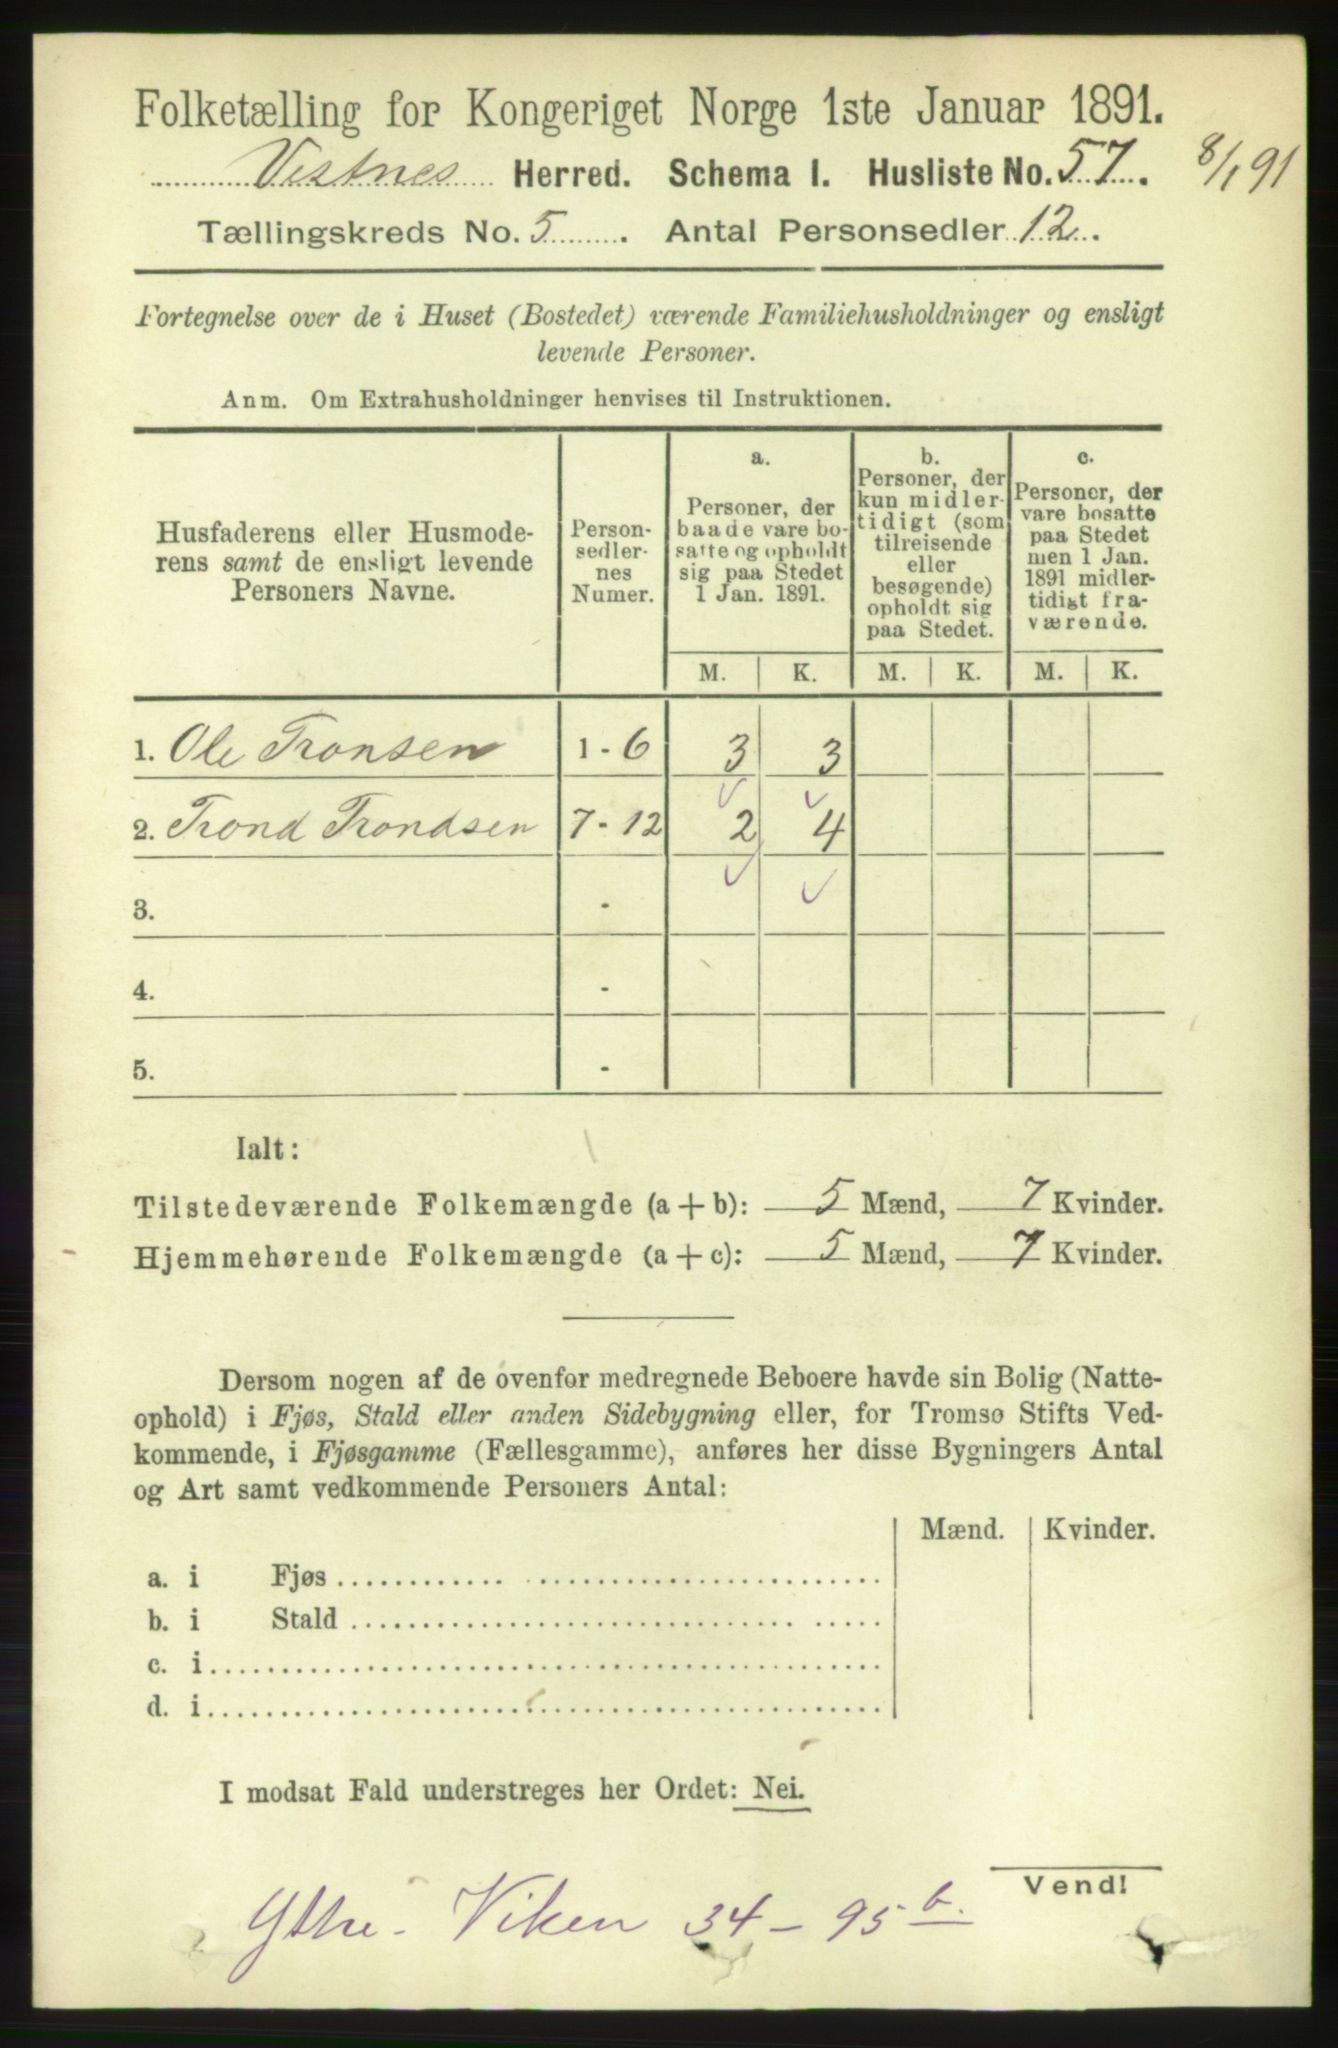 Folketælling for Kongeriget Norge 1ste Januar 1891.
Vestnes Herred. Schema I. Husliste No. 57.
8/1 91
Tællingskreds No. 5. Antal Personsedler 12.
Fortegnelse over de i Huset (Bostedet) værende Familiehusholdninger og ensligt
levende Personer.
Anm. Om Extrahusholdninger henvises til Instruktionen.
Husfaderens eller Husmode-
rens samt de ensligt levende
Personers Navne.
Person-
sedler-
nes
Numer.
a.
Personer, der
baade vare bo-
satte og opholdt
sig paa Stedet
1 Jan. 1891.
b.
Personer, der
kun midler-
tidigt (som
tilreisende
eller
besøgende)
opholdt sig
paa Stedet.
c.
Personer, der
vare bosatte
paa Stedet
men 1 Jan.
1891 midler-
tidigt fra-
værende.
M. K. M. K. M. K.
1. Ole Tronsen 1 - 6 3 3
2. Trond Trondsen 7 - 12 2 4
3. -
4. -
5. -
Ialt:
Tilstedeværende Folkemængde (a + b): 5 Mænd, 7 Kvinder.
Hjemmehørende Folkemængde (a + c): 5 Mænd, 7 Kvinder.
Dersom nogen af de ovenfor medregnede Beboere havde sin Bolig (Natte-
ophold) i Fjøs, Stald eller anden Sidebygning eller, for Tromsø Stifts Ved-
kommende, i Fjøsgamme (Fællesgamme), anføres her disse Bygningers Antal
og Art samt vedkommende Personers Antal:
Mænd. Kvinder.
a. i Fjøs
b. i Stald
c. i
d. i
I modsat Fald understreges her Ordet: Nei.
Vend!
Ythre - Viken 34 - 95 b.